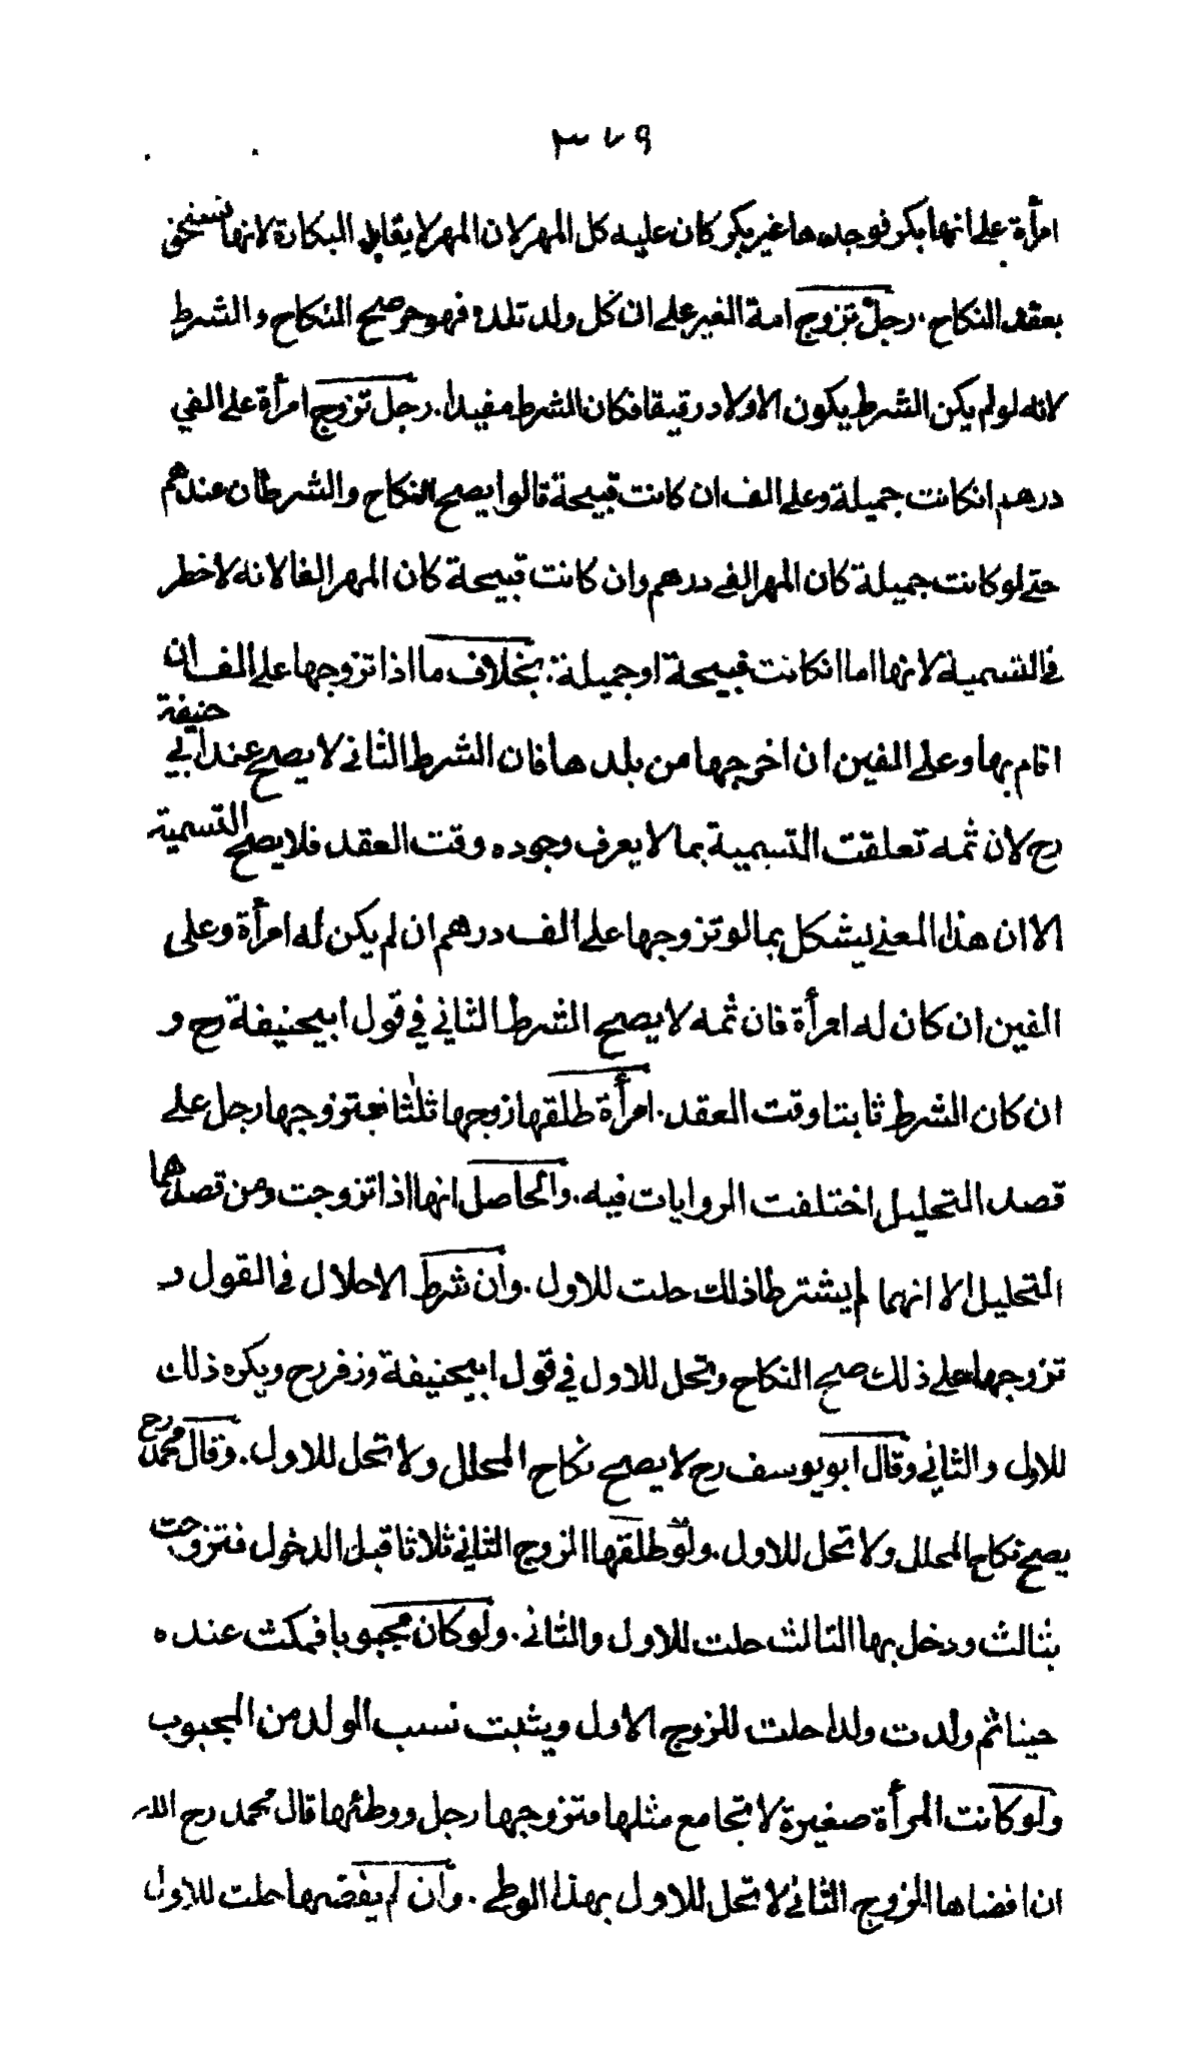 ٣٧٩
امرأة على انها بكر فوجدها غير بكر كان عليه كل المهر لان المهر لا يقابل البكارة لانها تستحق
بعقد النكاح. رجل تزوج امة الغير على ان كل ولد تلده فهو حر صح النكاح والشرط
لانه لو لم يكن الشرط يكون الاولاد رقيقا فكان الشرط مفيدا. رجل تزوج امرأة على الفي
درهم انكانت جميلة وعلى الف ان كانت قبيحة قالوا يصح النكاح والشرطان عندهم
حتى لو كانت جميلة كان المهر الفى درهم وان كانت قبيحة كان المهر الفا لانه لا خطر
فى التسمية لانها اما انكانت قبيحة او جميلة. بخلاف ما اذا تزوجها على الف ان
اقام بها وعلى الفين ان اخرجها من بلدها فان الشرط الثانى لا يصح عند ابي حنيفة
رح لان ثمه تعلقت التسمية بما لا يعرف وجوده وقت العقد فلا يصح التسمية
الا ان هذا المعنى يشكل بما لو تزوجها على الف درهم ان لم يكن له امرأة وعلى
الفين ان كان له امرأة فان ثمه لا يصح الشرط الثاني في قول ابيحنيفة رح و
ان كان الشرط ثابتا وقت العقد. امرأة طلقها زوجها ثلٰثا فتزوجها رجل على
قصد التحليل اختلفت الروايات فيه. والحاصل انها اذا تزوجت ومن قصدهما
التحليل الا انهما لم يشترطا ذلك حلت للاول. وان شرط الاحلال فى القول و
تزوجها على ذلك صح النكاح وتحل للاول في قول ابيحنيفة وزفر رح ويكره ذلك
للاول والثاني وقال ابو يوسف رح لا يصح نكاح المحلل ولا تحل للاول. وقال محمد رح
يصح نكاح المحلل ولا تحل للاول. ولو طلقها الزوج الثاني ثلاثا قبل الدخول فتزوجت
بثالث ودخل بها الثالث حلت للاول والثانى. ولو كان مجبوبا فمكث عنده
حينا ثم ولدت ولدا حلت للزوج الاول ويثبت نسب الولد من المجبوب
ولو كانت المرأة صغيرة لا تجامع مثلها فتزوجها رجل ووطئها قال محمد رح الله
ان افضاها الزوج الثانى لا تحل للاول بهذا الوطى. وان لم يفضها حلت للاول